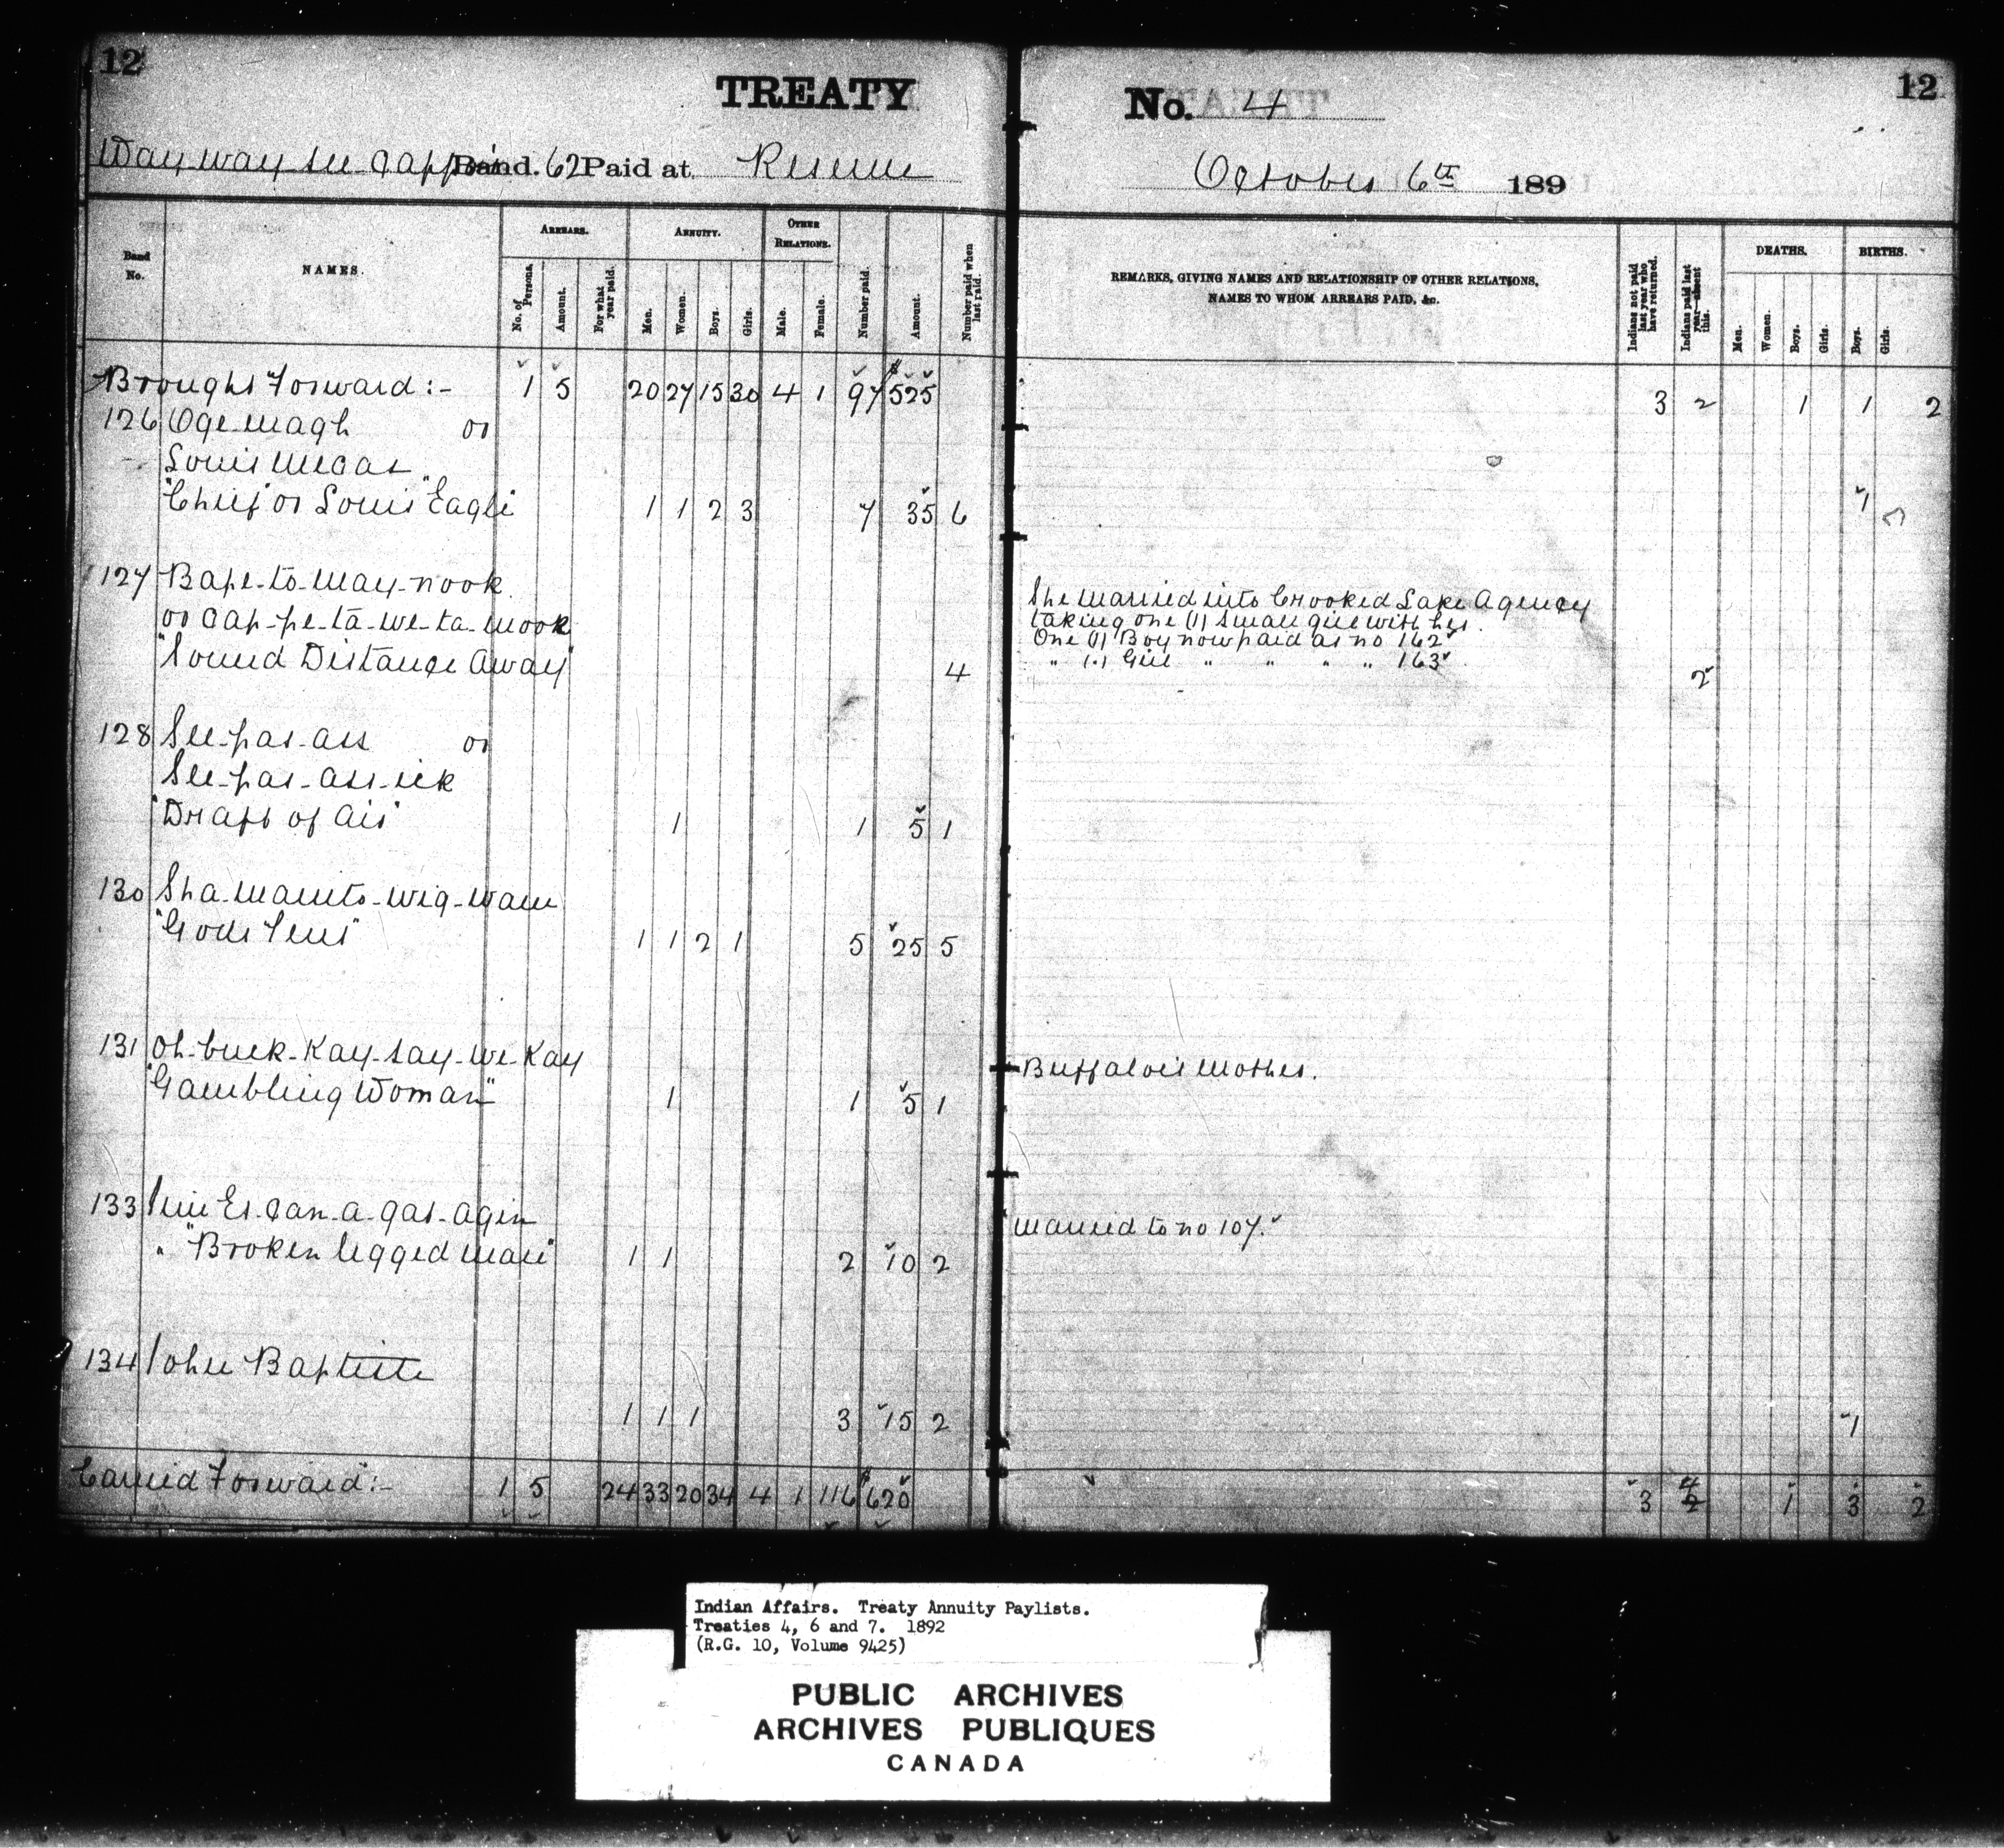 12
TREATY
No. 4
12
Way-way-see-Cappo's Band. 62 Paid at Reserve
October 6th 189
Band No.
NAMES.
ARREARS.
No. of Persons.
Amount.
For what year paid.
ANNUITY.
Men.
Women.
Boys.
Girls.
OTHER RELATIONS.
Male.
Female.
Number paid.
Amount.
Number paid when last paid.
REMARKS, GIVING NAMES AND RELATIONSHIP OF OTHER RELATIONS,
NAMES TO WHOM ARREARS PAID, &c.
Indians not paid last year who have returned.
Indians paid last year—absent this.
DEATHS.
Men.
Women.
Boys.
Girls.
BIRTHS.
Boys.
Girls.
Brought Forward :- 1 5 20 27 15 30 4 1 97 $525 3 2 1 1 2
126 Oge-magh or
Louis
"Chief" or Louis "Eagle" 1 1 2 3 7 35 6 1
127 Bape-to-way-nook
or Cap-pe-ta-we-ta-mook
"Sound Distance Away" 4 2
She married into Crooked Lake Agency
taking one (1) small girl with her.
One (1) Boy now paid as no 162
" (1) Girl " " " " 163
128 See-pas-ass or
See-pas-ass-ick
"Draft of Air" 1 1 5 1
130 Sha-manito-wig-wam
"Gods Tent" 1 1 2 1 5 25 5
131 Oh-buck-Kay-say-we-Kay
"Gambling Woman" 1 1 5 1
Buffalo's Mother.
133 Jim Es-can-a-gas-agin
" "Broken legged man" 1 1 2 10 2
Married to no 107.
134 John Baptiste
1 1 1 3 15 2 1
Carried Forward :- 1 5 24 33 20 34 4 1 116 $620 3 4 2 1 3 2
Indian Affairs. Treaty Annuity Paylists.
Treaties 4, 6 and 7. 1892
(R.G. 10, Volume 9425)
PUBLIC ARCHIVES
ARCHIVES PUBLIQUES
CANADA